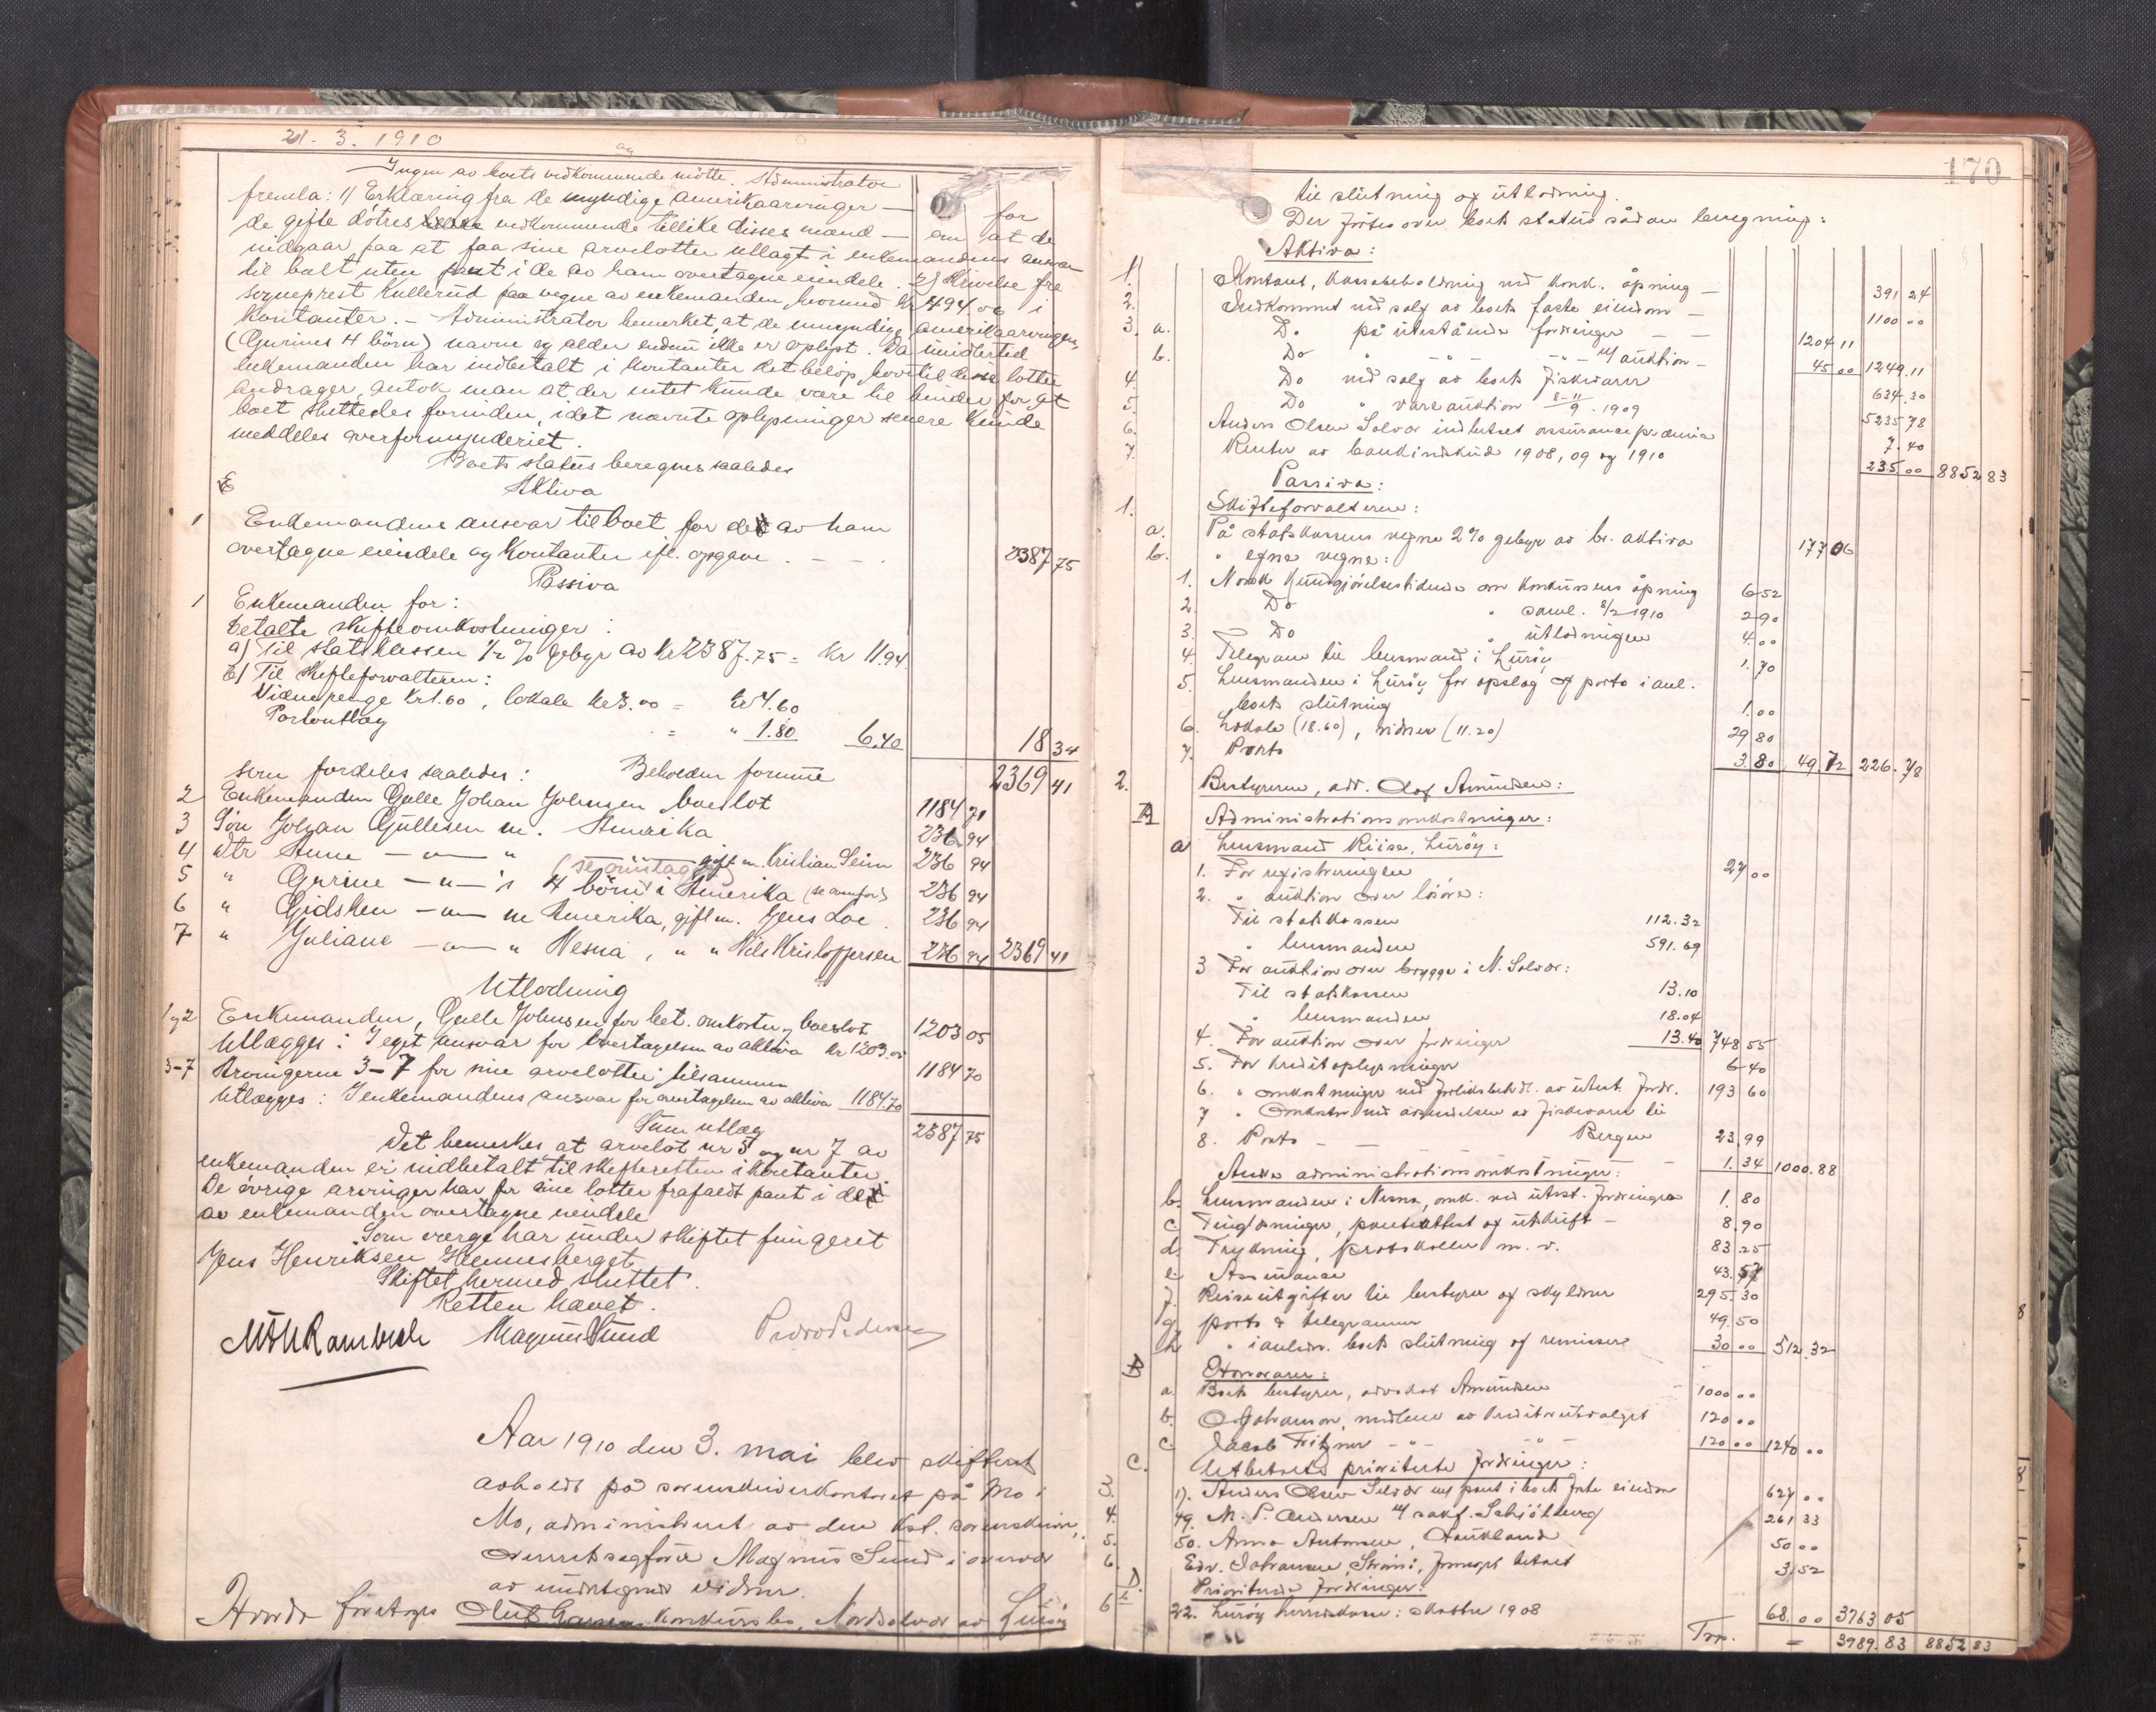 21. 3. 1910
Ingen av boets vedkommende mötte. Administrator
fremla: 1) Erklæring fra de myndige amerikaarvinger — for
de gifte dötres vedkommende tillike disses mænd — om at de
indgaar paa at faa sine arvelotter utlagt i enkemandens ansvar
til boet uten pant i de av ham overtagne eiendele. 2) Skrivelse fra
sogneprest Kullerud paa vegne av enkemanden hvorved kr 494.00 i
kontanter. — Administrator bemerket, at de umyndige amerikaarvinger,
(Gurines 4 börn) navne og alder endnu ikke er oplyst. Da imidlertid
enkemanden har indbetalt i kontanter det belop hvortil denne lotter
andrager, antok man at der intet kunde være til hinder for at
boet sluttedes forinden, idet nævnte oplysninger senere kunde
meddeles overformynderiet.
Boets status beregnes saaledes
Aktiva
1 Enkemandens ansvar til boet for det av ham
overtagne eiendele og kontanter ifl. opgave . — — . 2387 75
Passiva
1 Enkemanden for:
betalte skifteomkostninger :
a) Til statskassen 1/2 % gebyr av kr 2387.75 = kr 11.94
b) Til skifteforvalteren:
Vidnepenge kr 1.60, lokale kr 3.00 = kr 4.60
Portoutlæg = " 1.80 6.40 18 34
Beholden formue 2369 41
som fordeles saaledes:
2 Enkemanden Gulle Johan Johnsen boeslot 1184 71
3 Sön Johan Gullesen i Amerika 236 94
4 Dtr Anne — " — " gift m. Kristian Seim 236 94
5 " Gurine — " — 's 4 börn i Amerika (se ovenfor) 236 94
6 " Gidsken — " — i Amerika, gift m. Jens Loe . 236 94
7 " Juliane — " — " Nesna, " " Nils Kristoffersen 236 94 2369 41
Utlodning
1 og 2 Enkemanden, Gulle Johnsen for bet. omkostn. og boeslot 1203 05
Utlægges: I eget ansvar for overtagelsen av aktiva kr 1203.05
3-7 Arvingerne 3-7 for sine arvelotter tilsammen 1184 70
Utlægges: I enkemandens ansvar for overtagelsen av aktiva 1184.70
Sum utlæg 2387 75
Det bemerkes at arvelot nr 5 og nr 7 av
enkemanden er indbetalt til skifteretten i kontanter.
De övrige arvinger har for sine lotter frafaldt pant i det
av enkemanden overtagne eiendele
Som verge har under skiftet fungeret
Jens Henriksen Hemnesberget
Skiftet hermed sluttet.
Retten hævet.
Magnus Sund
Aar 1910 den 3. mai blev skifteret
avholdt på sorenskriverkontoret på Mo i
Mo, administrert av den kst. sorenskriver,
overretssagförer Magnus Sund i overvær
av undertegnede vidner.
Hvorda foretoges konkursbo, Nordsolvær av Luröy
170
til slutning og utlodning.
Der förtes over boets status sådan beregning:
Aktiva:
1. Kontant, kassabeholdning ved konk. åpning — 391 24
2. Indkommet ved salg av boets faste eiendom — 1100 00
3. a. Do på utestående fordringer — — 1204 11
b. Do " — " — — " — v/ auktion — 45 00 1249.11
4. Do ved salg av boets fiskevarer 634.30
5. Do " vareauktion 8-11/9 . 1909 5235 78
6. Anders Olsen Solvær indbetalt assurancepræmie 7.40
7. Renter av bankindskud 1908, 09 og 1910 235.00 8852 83
Passiva:
1. Skifteforvalteren:
a. På statskassens vegne 2% gebyr av br. aktiva 177 06
b. " egne vegne:
1. Norsk Kundgjörelsestidende om konkursens åpning 6 52
2. Do " saml. 8/2 1910 2 90
3. Do " utlodningen 4.00
4. Telegram til lensmand i Luröy 1.70
5. Lensmanden i Luröy for opslag og porto i anl.
boets slutning 1.00
6. Lokale (18.60), vidner (11.20) 29 80
7. Porto 3.80 49 72 226.78
2. Bestyreren, adv. Olaf Amundsen:
A Administrationsomkostninger:
a Lensmand Riise, Luröy:
1. For registreringen 27 00
2. " auktion over lösöre:
Til statskassen 112.32
" lensmanden 591.69
3 For auktion over brygge i N. Solvær:
Til statskassen 13.10
" lensmanden 18.04
4. For auktion over fordringer 13.40 748 55
5. For kreditoplysninger 6 40
6. " omkostninger ved forliksbehdl. av utest. fordr. 193 60
7 " Omkostn. ved avsendelsen av fiskevarer til
Bergen 23.99
8. Porto — — 1.34 1000.88
Andre administrationsomkostninger:
b. Lensmanden i Nesna, omk. ved utest. fordringer 1.80
c Tinglysninger, panteattest og utskrift — 8.90
d. Trykning, protokoller m. v. 83 25
e Assurance 43.57
f. Reiseutgifter til bestyrer og skyldner 295.30
g porto & telegrammer 49.50
h " i anledn. boets slutning og remisser 30 00 512.32
B Honorarer:
a. Boets bestyrer, advokat Amundsen 1000 00
b. O. Johanson, medlem av kreditorutvalget 120 00
c. Jacob Fitzner — " — — " — 120 00 1240 00
C. Utbetalte prioriterte fordringer:
3 17. Anders Olsen Solvær m/ pant i boets faste eiendom 627 00
4. 49. M. P. Andersen v/ sakf. Schjölberg 261 33
5. 50. Anna Antonsen, Haukland 50 00
6. Edv. Johansen, Strömö, betalt 31 52
D. Prioriterte fordringer:
6 22. Luröy herredskasse: skatter 1908 68.00 3763 05
Trp. — 3989.83 8852 83